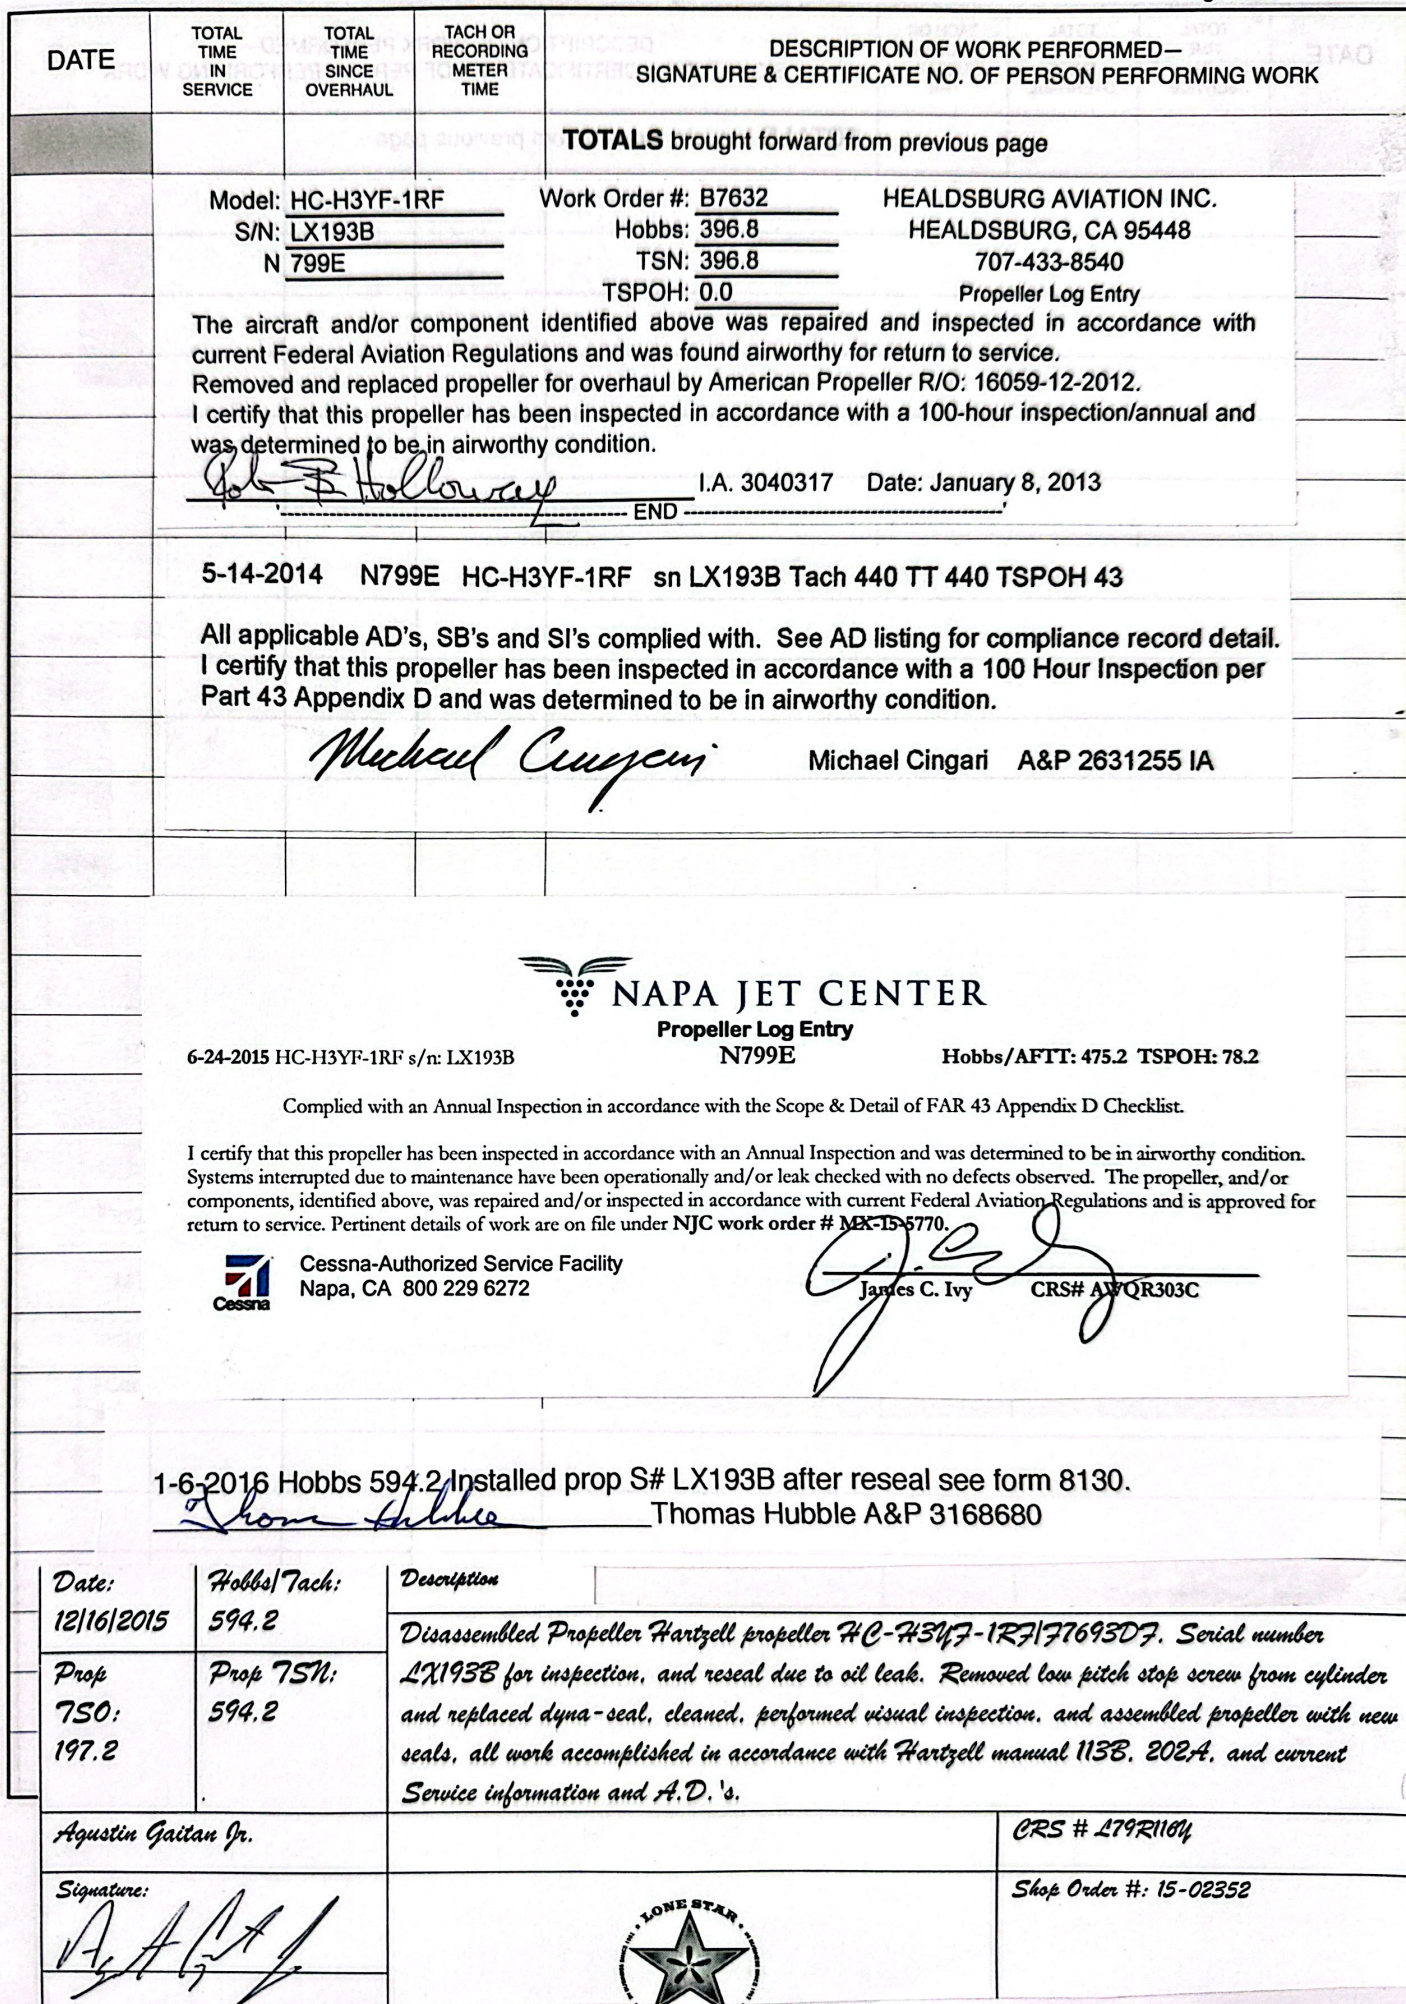 DATE
TOTAL TIME IN SERVICE
TOTAL TIME SINCE OVERHAUL
TACH OR RECORDING METER TIME
DESCRIPTION OF WORK PERFORMED—
SIGNATURE & CERTIFICATE NO. OF PERSON PERFORMING WORK
TOTALS brought forward from previous page
Model: HC-H3YF-1RF Work Order #: B7632 HEALDSBURG AVIATION INC.
S/N: LX193B Hobbs: 396.8 HEALDSBURG, CA 95448
N 799E TSN: 396.8 707-433-8540
TSPOH: 0.0 Propeller Log Entry
The aircraft and/or component identified above was repaired and inspected in accordance with
current Federal Aviation Regulations and was found airworthy for return to service.
Removed and replaced propeller for overhaul by American Propeller R/O: 16059-12-2012.
I certify that this propeller has been inspected in accordance with a 100-hour inspection/annual and
was determined to be in airworthy condition.
Holloway I.A. 3040317 Date: January 8, 2013
END
5-14-2014 N799E HC-H3YF-1RF sn LX193B Tach 440 TT 440 TSPOH 43
All applicable AD's, SB's and SI's complied with. See AD listing for compliance record detail.
I certify that this propeller has been inspected in accordance with a 100 Hour Inspection per
Part 43 Appendix D and was determined to be in airworthy condition.
Michael Cingari Michael Cingari A&P 2631255 IA
NAPA JET CENTER
Propeller Log Entry
6-24-2015 HC-H3YF-1RF s/n: LX193B N799E Hobbs/AFTT: 475.2 TSPOH: 78.2
Complied with an Annual Inspection in accordance with the Scope & Detail of FAR 43 Appendix D Checklist.
I certify that this propeller has been inspected in accordance with an Annual Inspection and was determined to be in airworthy condition.
Systems interrupted due to maintenance have been operationally and/or leak checked with no defects observed. The propeller, and/or
components, identified above, was repaired and/or inspected in accordance with current Federal Aviation Regulations and is approved for
return to service. Pertinent details of work are on file under NJC work order # MX-15-5770.
Cessna
Cessna-Authorized Service Facility
Napa, CA 800 229 6272
James C. Ivy CRS# AWQR303C
1-6-2016 Hobbs 594.2 Installed prop S# LX193B after reseal see form 8130.
Thomas Hubble Thomas Hubble A&P 3168680
Date:
12/16/2015
Hobbs/Tach:
594.2
Description
Prop
TSO:
197.2
Prop TSN:
594.2
Disassembled Propeller Hartzell propeller HC-H3YF-1RF/F7693DF. Serial number
LX193B for inspection, and reseal due to oil leak. Removed low pitch stop screw from cylinder
and replaced dyna-seal, cleaned, performed visual inspection, and assembled propeller with new
seals, all work accomplished in accordance with Hartzell manual 113B, 202A, and current
Service information and A.D.'s.
Agustin Gaitan Jr.
CRS # L79R116Y
Signature:
Shop Order #: 15-02352
LONE STAR